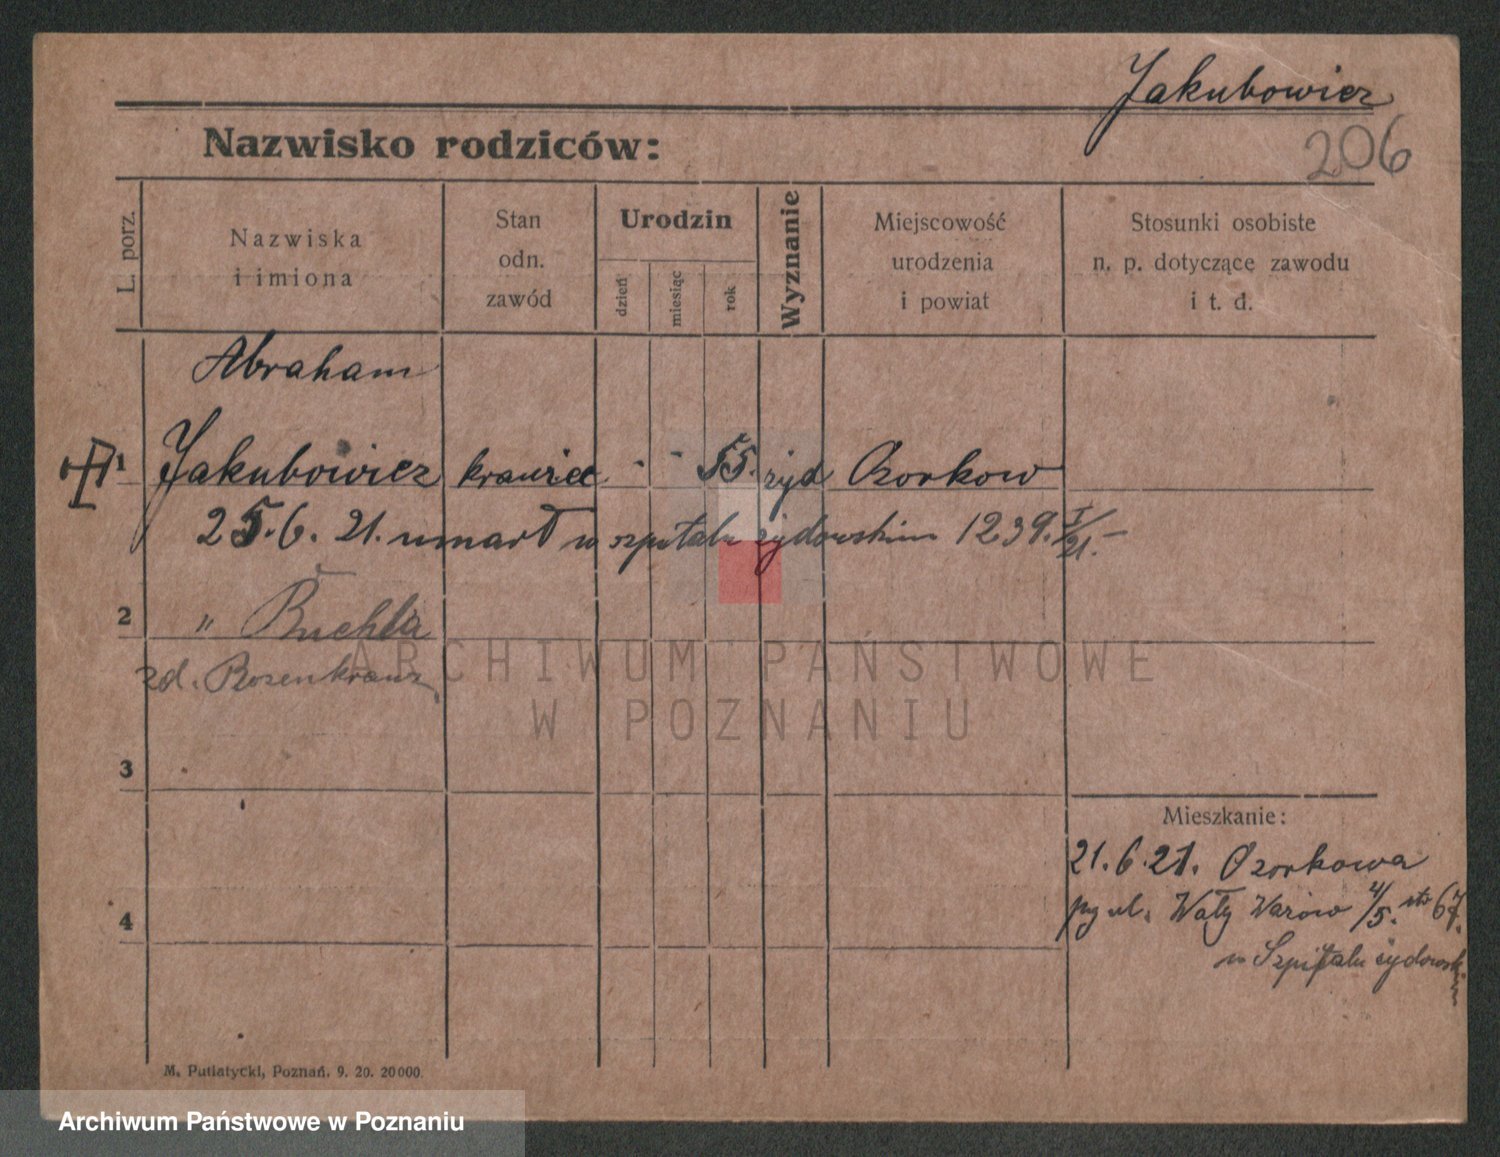 Jakubowicz
206
Nazwisko rodziców:
L. porz.
Nazwiska
i imiona
Stan
odn.
zawód
Urodzin
dzień
miesiąc
rok
Wyznanie
Miejscowość
urodzenia
i powiat
Stosunki osobiste
n. p. dotyczące zawodu
i t. d.
Abraham
1 Jakubowicz krawiec - - 55. żyd Ozorkow
25.6.21. umarł w szpitalu żydowskim 1239. I/21.
2 " Ruchla
zd. Rosenkranz
ARCHIWUM PAŃSTWOWE
W POZNANIU
3
Mieszkanie:
21.6.21. Ozorkowa
ul. Wały 4/5.
4
w Szpitalu żydowskim
M. Putiatycki, Poznań. 9. 20. 20000.
Archiwum Państwowe w Poznaniu